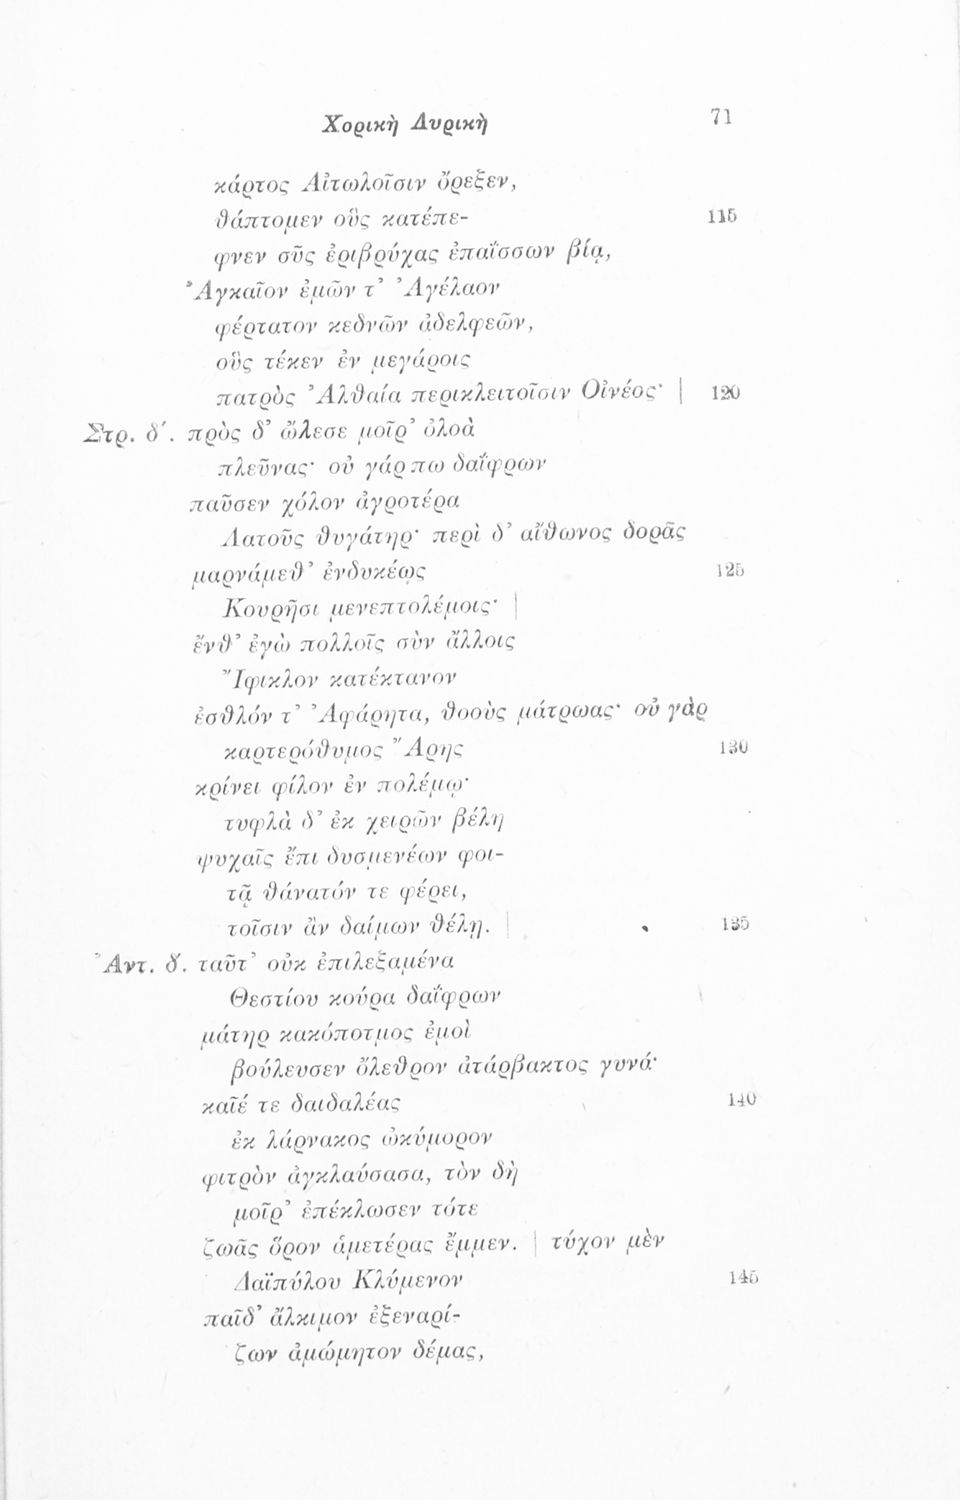 Χορικὴ Λυρικὴ 71
κάρτος Αἰτωλοῖσιν ὄρεξεν,
θάπτομεν οὓς κατέπε- 115
φνεν σῦς ἐριβρύχας ἐπαΐσσων βίᾳ,
Ἀγκαῖον ἐμῶν τ’ Ἀγέλαον
φέρτατον κεδνῶν ἀδελφεῶν,
οὓς τέκεν ἐν μεγάροις
πατρὸς Ἀλθαία περικλειτοῖσιν Οἰνέος· | 120
Στρ. δ΄. πρὸς δ’ ὤλεσε μοῖρ’ ὀλοὰ
πλεῦνας· οὐ γάρ πω δαΐφρων
παῦσεν χόλον ἀγροτέρα
Λατοῦς θυγάτηρ· περὶ δ’ αἴθωνος δορᾶς
μαρνάμεθ’ ἐνδυκέως 125
Κουρῆσι μενεπτολέμοις· |
ἔνθ’ ἐγὼ πολλοῖς σὺν ἄλλοις
Ἴφικλον κατέκτανον
ἐσθλόν τ’ Ἀφάρητα, θοοὺς μάτρωας· οὐ γὰρ
καρτερόθυμος Ἄρης 130
κρίνει φίλον ἐν πολέμῳ·
τυφλὰ δ’ ἐκ χειρῶν βέλη
ψυχαῖς ἔπι δυσμενέων φοι-
τᾷ θάνατόν τε φέρει,
τοῖσιν ἂν δαίμων θέλῃ. | 135
Ἀντ. δ΄. ταῦτ’ οὐκ ἐπιλεξαμένα
Θεστίου κούρα δαΐφρων
μάτηρ κακόποτμος ἐμοὶ
βούλευσεν ὄλεθρον ἀτάρβακτος γυνά·
καῖέ τε δαιδαλέας 140
ἐκ λάρνακος ὠκύμορον
φιτρὸν ἀγκλαύσασα, τὸν δὴ
μοῖρ’ ἐπέκλωσεν τότε
ζωᾶς ὅρον ἁμετέρας ἔμμεν. | τύχον μὲν
Δαϊπύλου Κλύμενον 145
παῖδ’ ἄλκιμον ἐξεναρί-
ζων ἀμώμητον δέμας,